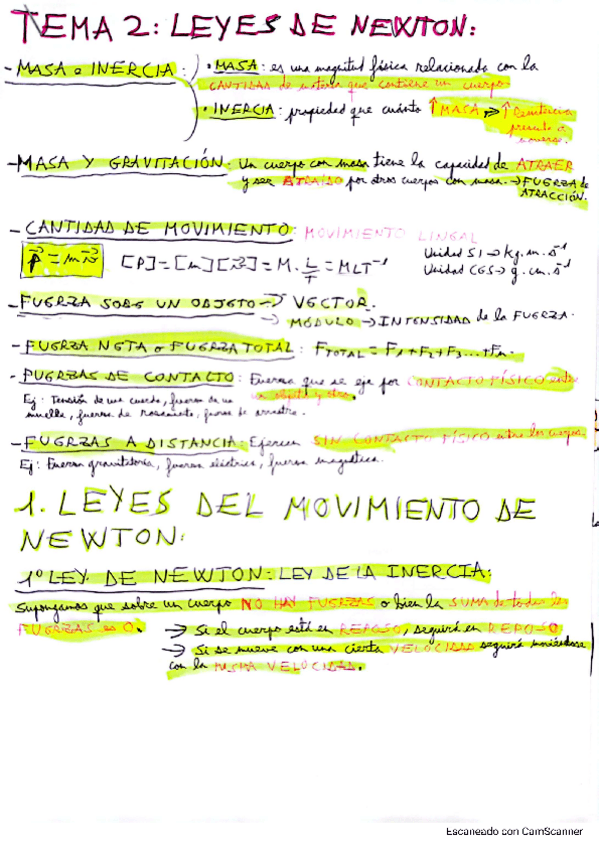 TEMA 2: LEYES DE NEWTON:
- MASA e INERCIA: • MASA: es una magnitud física relacionado con la
CANTIDAD de materia que contiene un cuerpo.
• INERCIA: propiedad que cuánto ↑ MASA ⇒ ↑ Resistencia
presenta a
moverse.
- MASA Y GRAVITACIÓN: Un cuerpo con masa tiene la capacidad de ATRAER
y ser ATRAIDO por otros cuerpos con masa. → FUERZA de
ATRACCIÓN.
- CANTIDAD DE MOVIMIENTO: MOVIMIENTO LINEAL
p⃗ = m v⃗ [P] = [m][v⃗] = M · L/T = MLT⁻¹ Unidad SI → kg. m. s⁻¹
Unidad CGS → g. cm. s⁻¹
- FUERZA SOBE UN OBJETO → VECTOR.
→ MÓDULO → INTENSIDAD de la FUERZA.
- FUERZA NETA o FUERZA TOTAL: F TOTAL = F1+F2+F3...+Fn.
- FUERZAS DE CONTACTO: Fuerza que se eje por CONTACTO FÍSICO entre
un objeto y otro.
Ej: Tensión de una cuerda, fuerza de un
muelle, fuerza de rozamiento, fuerza de arrastre.
- FUERZAS A DISTANCIA: Ejercen SIN CONTACTO FÍSICO entre los cuerpos.
Ej: Fuerza gravitatoria, fuerza eléctrica, fuerza magnética.
1. LEYES DEL MOVIMIENTO DE
NEWTON:
1º LEY DE NEWTON: LEY DE LA INERCIA:
Supongamos que sobre un cuerpo NO HAY FUERZAS o bien la SUMA de todas las
FUERZAS es 0. → Si el cuerpo está en REPOSO, seguirá en REPOSO
→ Si se mueve con una cierta VELOCIDAD seguirá moviéndose
con la MISMA VELOCIDAD.
Escaneado con CamScanner